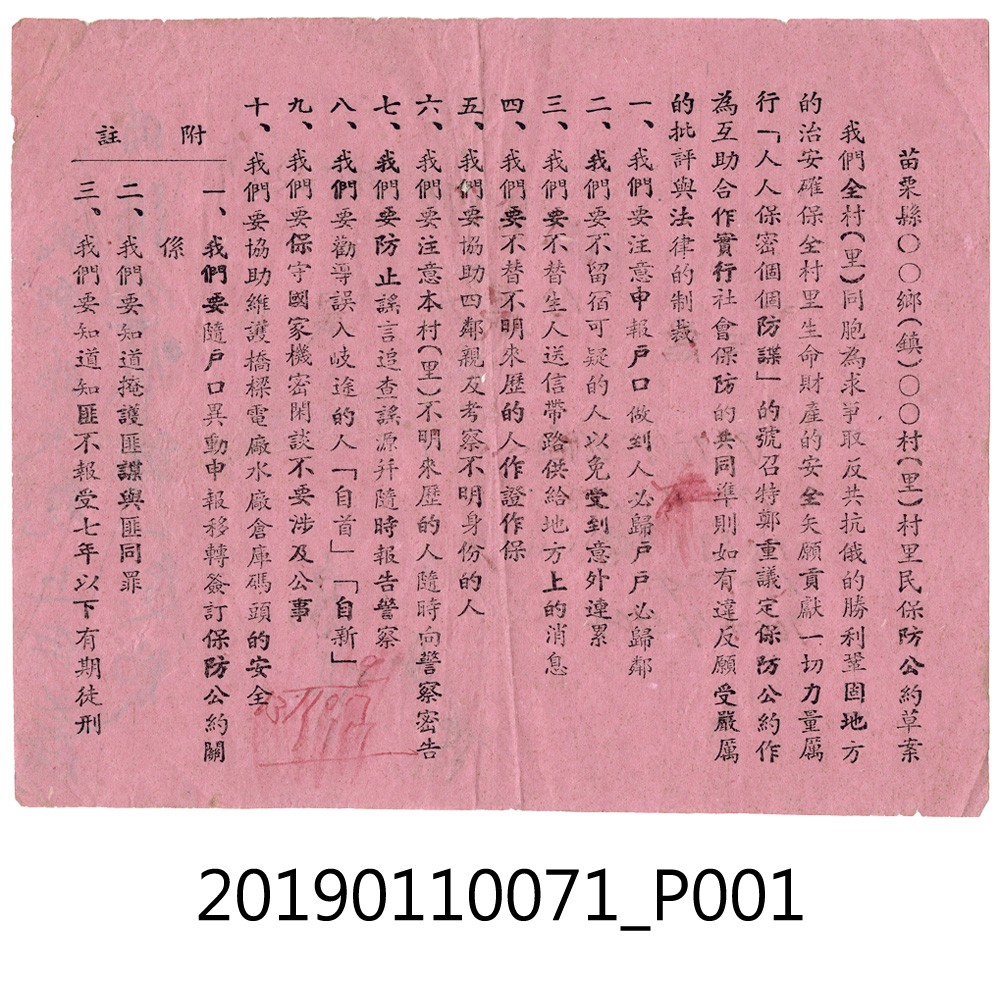 苗栗縣〇〇鄉(鎮)〇〇村(里)村里民保防公約草案
我們全村(里)同胞為求爭取反共抗俄的勝利鞏固地方
的治安確保全村里生命財產的安全矢願貢獻一切力量厲
行「人人保密個個防諜」的號召特鄭重議定保防公約作
為互助合作實行社會保防的共同準則如有違反願受嚴厲
的批評與法律的制裁
一、我們要注意申報戶口做到人必歸戶戶必歸鄰
二、我們要不留宿可疑的人以免受到意外連累
三、我們要不替生人送信帶路供給地方上的消息
四、我們要不替不明來歷的人作證作保
五、我們要協助四鄰親友考察不明身份的人
六、我們要注意本村(里)不明來歷的人隨時向警察密告
七、我們要防止謠言追查謠源并隨時報告警察
八、我們要勸導誤入歧途的人「自首」「自新」
九、我們要保守國家機密閑談不要涉及公事
十、我們要協助維護橋樑電廠水廠倉庫碼頭的安全
附註
一、我們要隨戶口異動申報移轉簽訂保防公約關
係
二、我們要知道掩護匪諜與匪同罪
三、我們要知道知匪不報受七年以下有期徒刑
20190110071_P001